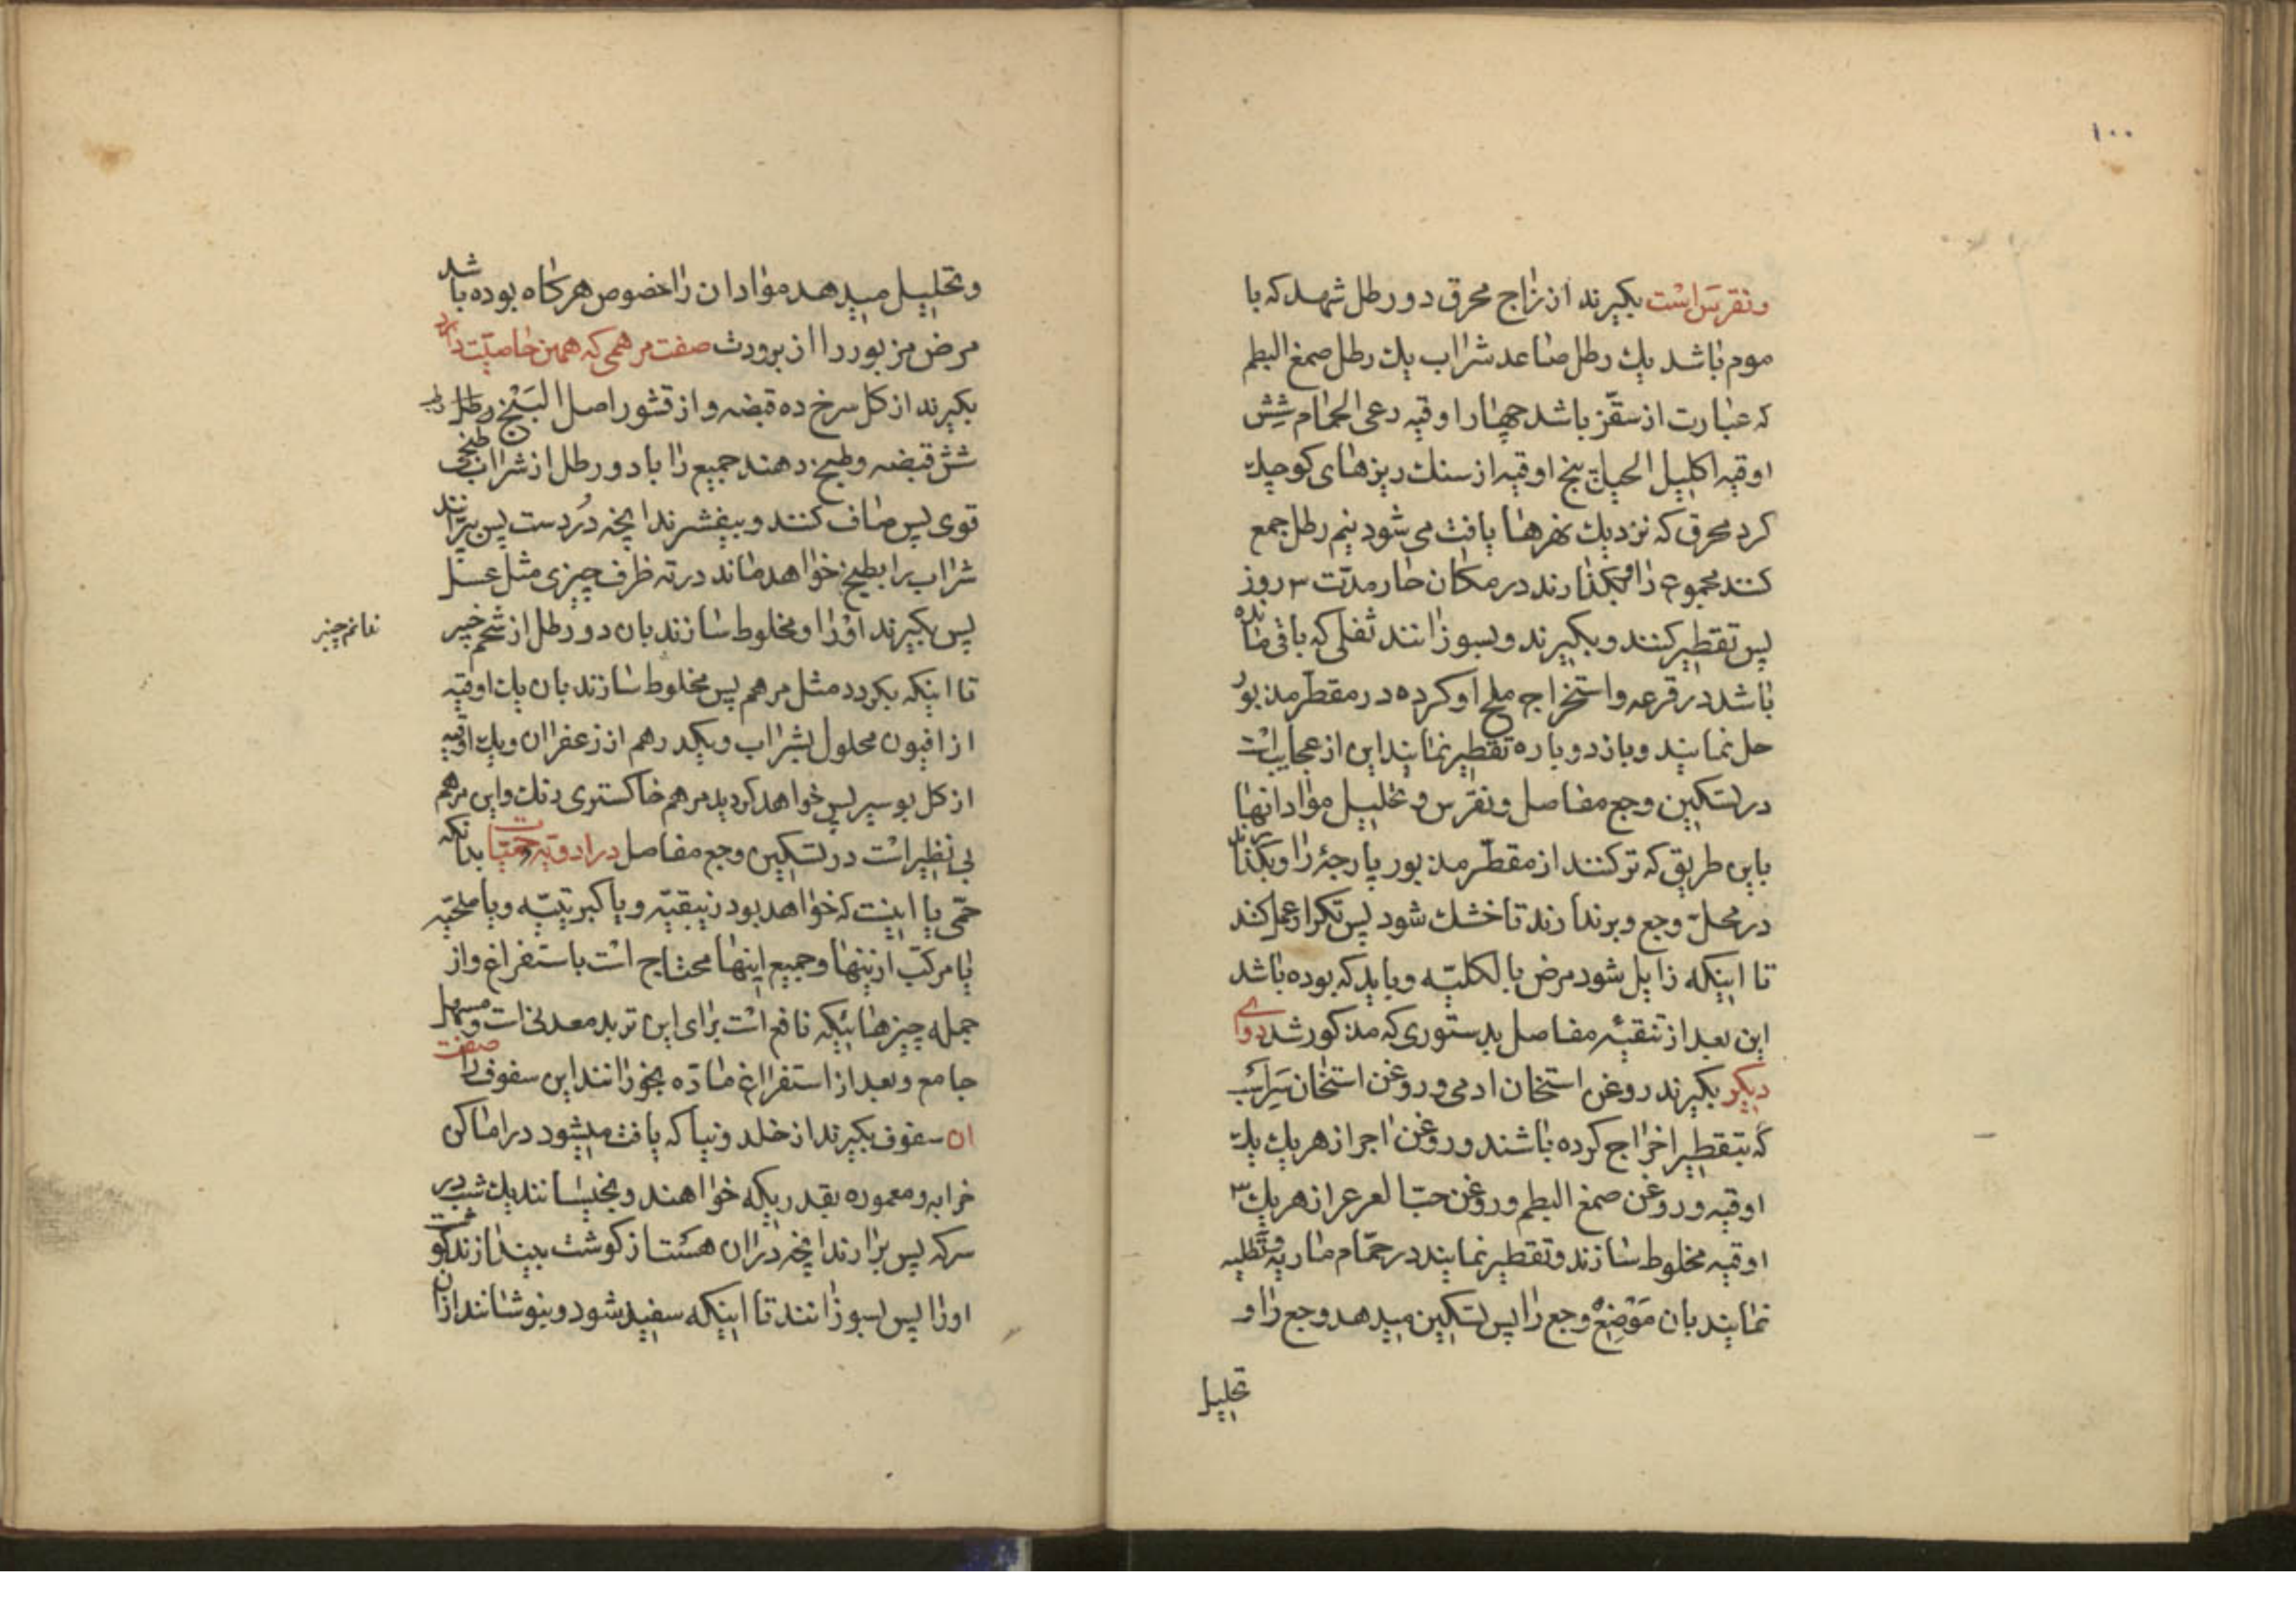 ۱۰۰
ونقرس است بکیرند از زاج محرق دو رطل شهد که با
موم باشد یك رطل صاعد شراب یك رطل صمغ البطم
که عبارت از سقّز باشد چهار اوقیه رعی الحمام شش
اوقیه اکلیل الجبل پنج اوقیه از سنك ریزهای کوچك
کرد محرق که نزدیك نهرها یافت می شود نیم رطل جمع
کنند مجموع را و بکذارند در مکان حار مدّت ۳ روز
پس تقطیر کنند و بکیرند و بسوزانند ثفلی که باقی مانده
باشد در قرعه و استخراج ملح او کرده در مقطّر مذبور
حل نمایند و باز دوباره تقطیر نمایند این از عجایب است
در تسکین وجع مفاصل و نقرس و تحلیل مواد انها
باین طریق که تر کنند از مقطّر مذبور پارچهٔ را و بکذارند
در محلّ وجع و بردارند تا خشك شود پس تکرار عمل کند
تا اینکه زایل شود مرض بالکلیّه و باید که بوده باشد
این بعد از تنقیهٔ مفاصل بدستوری که مذکور شد دوای
دیکر بکیرند روغن استخان ادمی و روغن استخان
که بتقطیر اخراج کرده باشند و روغن اجر از هر یك یك
اوقیه و روغن صمغ البطم و روغن حبّ العرعر از هر یك ۳
اوقیه مخلوط سازند و تقطیر نمایند در حمّام ماریه و تطلیه
نمایند بان موضع وجع را پس تسکین میدهد وجع را و
تحلیل
وتحلیل میدهد مواد ان را خصوص هرکاه بوده باشد
مرض مزبور را از برودت صفت مرهمی که همین خاصیّت دارد
بکیرند از کل سرخ ده قبضه و از قشور اصل البنج
شش قبضه و طبخ دهند جمیع را با دو رطل از شراب
قوی پس صاف کنند و بیفشرند انچه دُردست پس بپزانند
شراب را بطبخ خواهد ماند در ته ظرف چیزی مثل عسل
پس بکیرند او را و مخلوط سازند بان دو رطل از شحم خبر
تا اینکه بکردد مثل مرهم پس مخلوط سازند بان یك اوقیه
از افیون محلول بشراب و یکدرهم از زعفران و یك اوقیه
از کل بوسیر پس خواهد کردید مرهم خاکستری رنك و این مرهم
بی نظیر است در تسکین وجع مفاصل در ادویه حمّیات بدانکه
حمّی یا اینست که خواهد بود زیبقیّه و یا کبریتیّه و یا ملحیّه
یا مرکّب از اینها و جمیع اینها محتاج است باستفراغ و از
جمله چیزهائیکه نافع است برای این تربد معدنی است و مسهل
جامع و بعد از استفراغ مادّه بخورانند این سفوف را صفت
ان سفوف بکیرند از خلد و نیا که یافت میشود در اماکن
خرابه و معموره بقدریکه خواهند و بخیسانند یك شب در
سرکه پس برارند انچه در ان هست از کوشت بیندازند کوشت
او را پس بسوزانند تا اینکه سفید شود و بنوشانند از ان